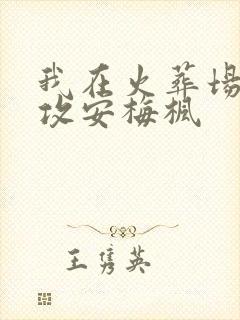 我在火葬场
攻安梅枫
王隽英